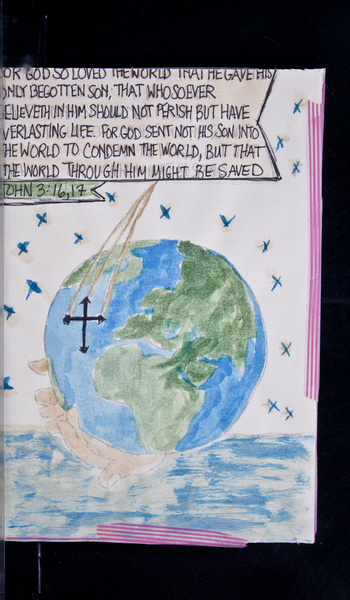 OR GOD SO LOVED THE WORLD THAT HE GAVE HIS
ONLY BEGOTTEN SON, THAT WHOSOEVER
ELIEVETH IN HIM SHOULD NOT PERISH BUT HAVE
VERLASTING LIFE. FOR GOD SENT NOT HIS SON INTO
HE WORLD TO CONDEMN THE WORLD, BUT THAT
THE WORLD THROUGH HIM MIGHT BE SAVED
JOHN 3:16,17